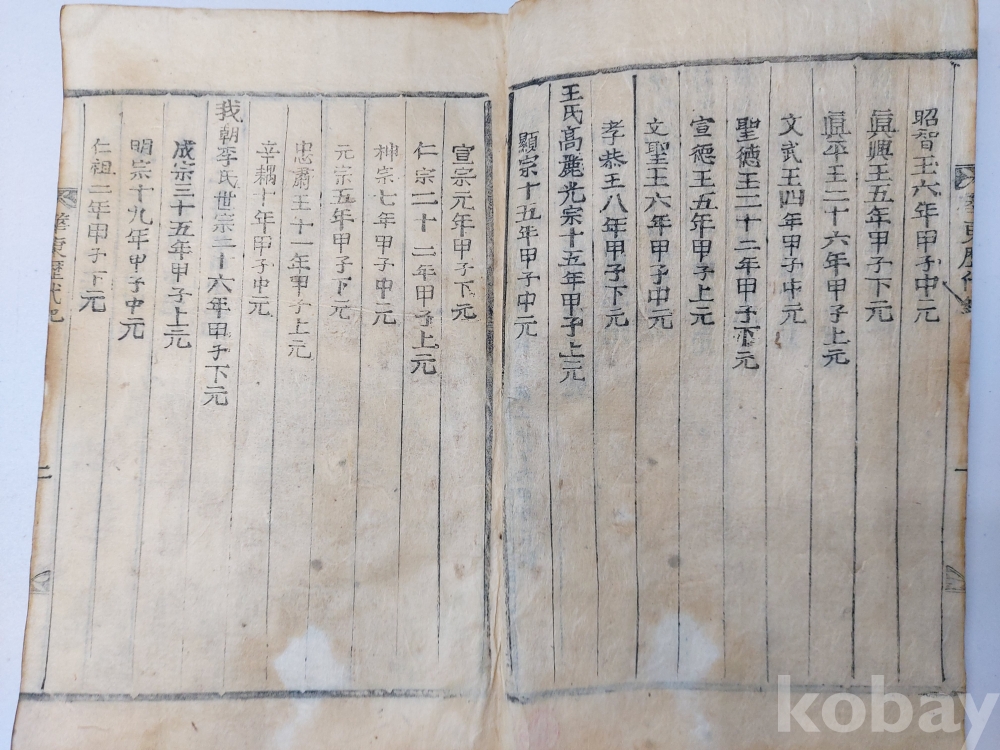 昭智王六年甲子中元
眞興王五年甲子下元
眞平王二十六年甲子上元
文武王四年甲子中元
聖德王二十二年甲子下元
宣德王五年甲子上元
文聖王六年甲子中元
孝恭王八年甲子下元
王氏高麗光宗十五年甲子上元
顯宗十五年甲子中元
宣宗元年甲子下元
仁宗二十二年甲子上元
神宗七年甲子中元
元宗五年甲子下元
忠肅王十一年甲子上元
辛耦十年甲子中元
我朝李氏世宗二十六年甲子下元
成宗三十五年甲子上元
明宗十九年甲子中元
仁祖二年甲子下元
華東歷代
二
一
kobay